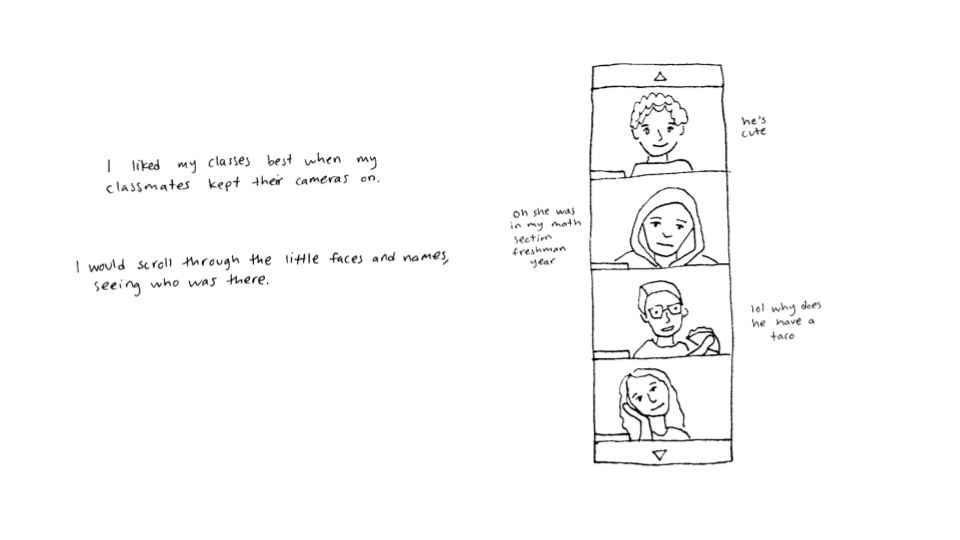 I liked my classes best when my
classmates kept their cameras on.
I would scroll through the little faces and names,
seeing who was there.
he's
cute
oh she was
in my math
section
freshman
year
lol why does
he have a
taco